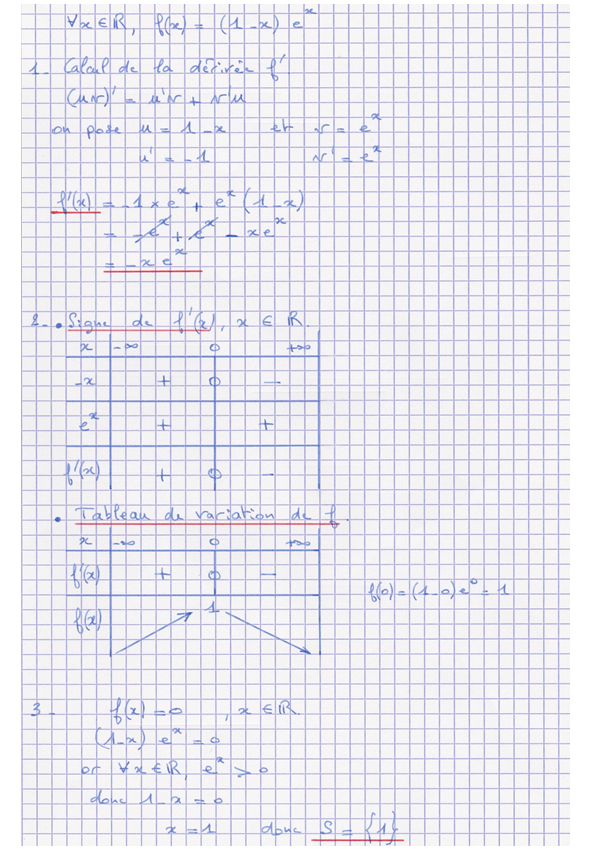 ∀x∈ℝ, f(x) = (1-x) e^x
1- Calcul de la dérivée f'
(uv)' = u'v + v'u
on pose u = 1-x et v = e^x
u' = -1 v' = e^x
f'(x) = -1 × e^x + e^x (1-x)
= -e^x + e^x - xe^x
= -x e^x
2- • Signe de f'(x), x ∈ ℝ.
x -∞ 0 +∞
-x + 0 -
e^x + +
f'(x) + 0 -
• Tableau de variation de f.
x -∞ 0 +∞
f'(x) + 0 -
f(0) = (1-0) e^0 = 1
f(x) 1
3- f(x) = 0 , x ∈ ℝ.
(1-x) e^x = 0
or ∀x∈ℝ, e^x > 0
donc 1-x = 0
x = 1 donc S = {1}